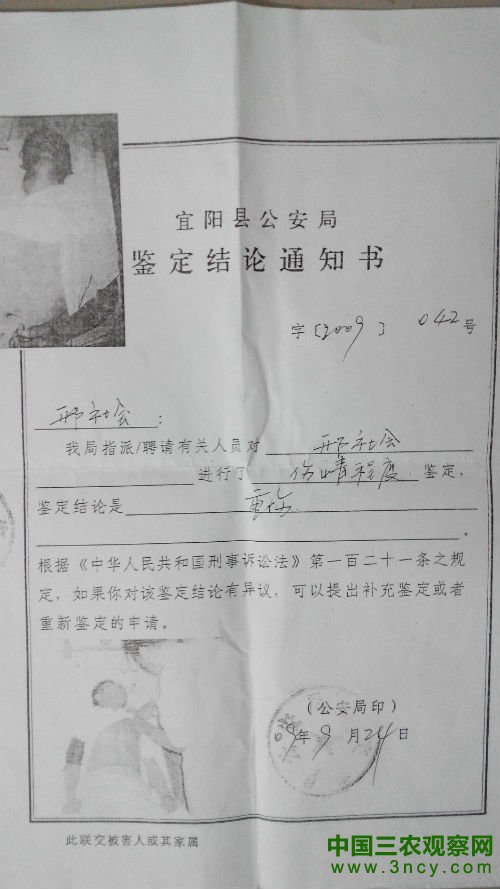 宜阳县公安局
鉴定结论通知书
字〔2009〕042号
邢社会：
我局指派/聘请有关人员对 邢社会
进行了 伤情程度 鉴定，
鉴定结论是 重伤
。
根据《中华人民共和国刑事诉讼法》第一百二十一条之规
定，如果你对该鉴定结论有异议，可以提出补充鉴定或者
重新鉴定的申请。
（公安局印）
09年9月24日
此联交被害人或其家属
中国三农观察网
www.3ncy.com